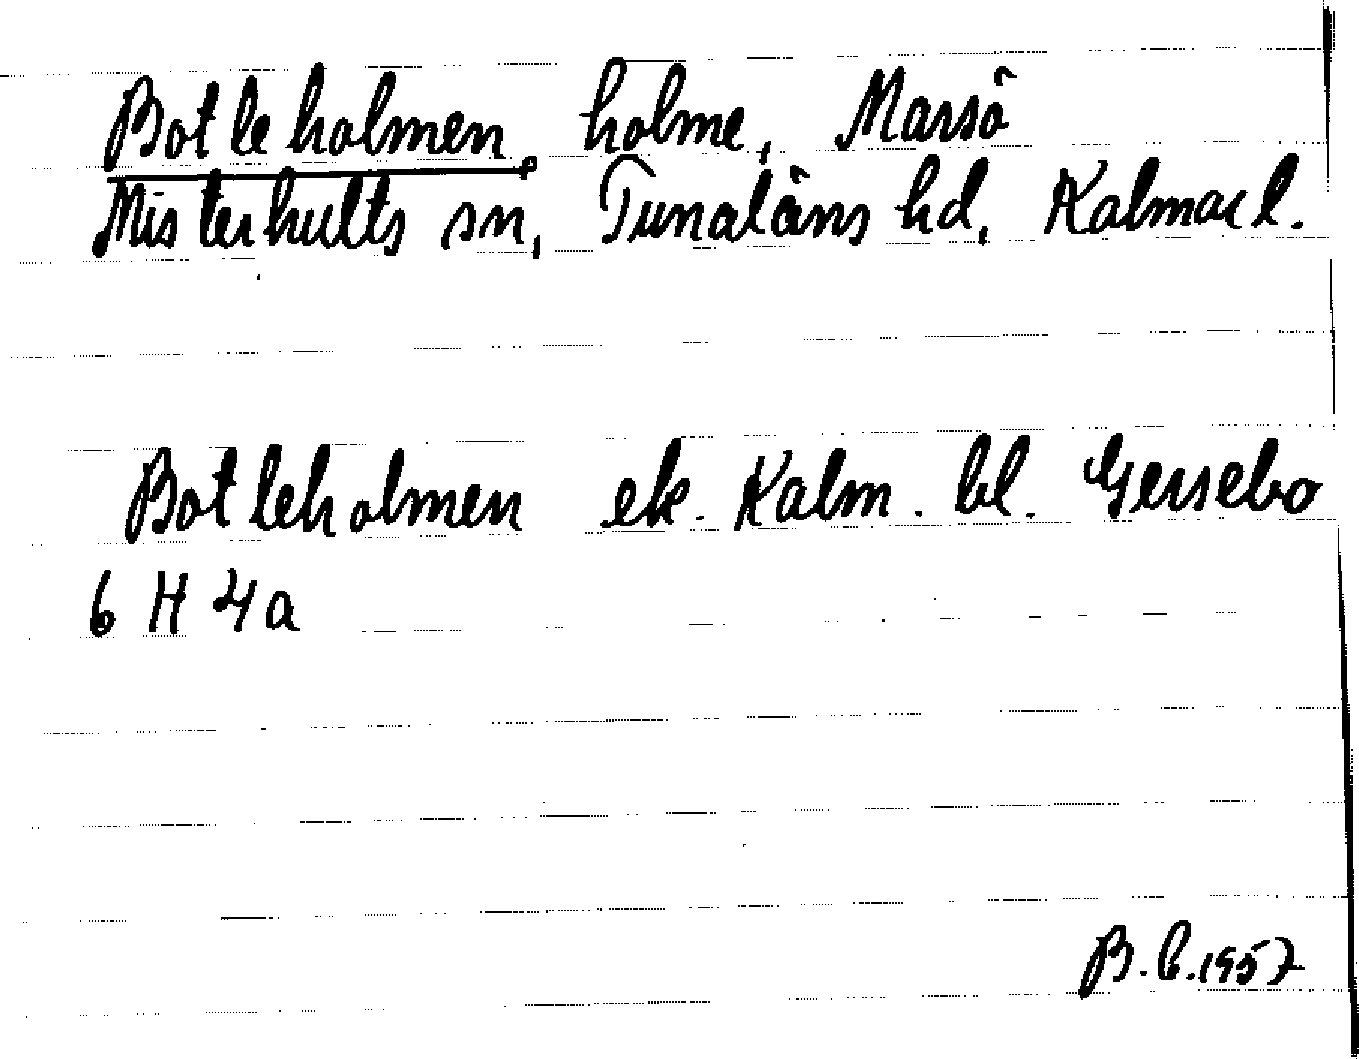 Botleholmen, holme, Marsö
Misterhults sn, Tunaläns hd, Kalmar l.
Botleholmen ek. Kalm. bl. Gersebo
6 H 4a
B.C.1957